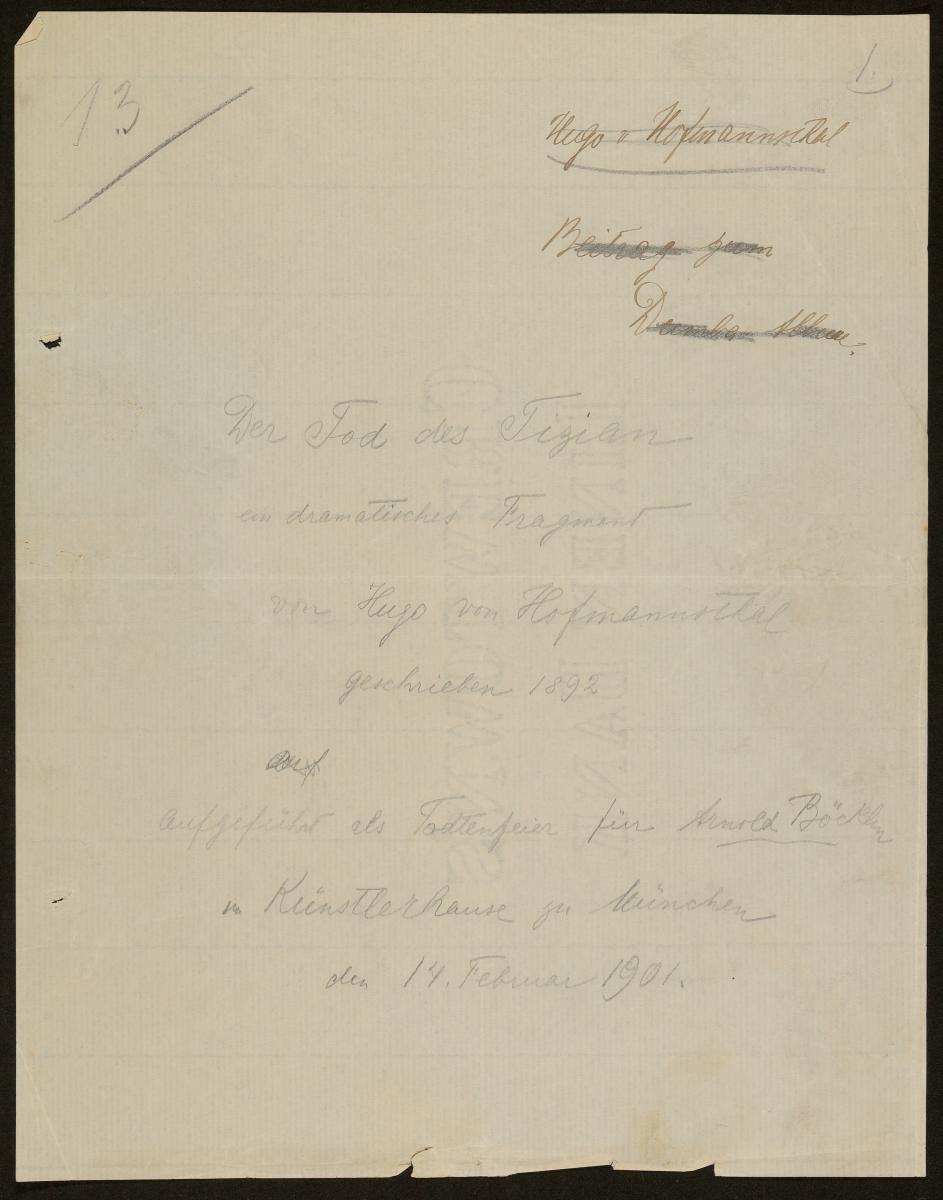 13
1.
Hugo v Hofmannsthal
Beitrag zum
Dumba Album.
Der Tod des Tizian
ein dramatisches Fragment
von Hugo von Hofmannsthal
geschrieben 1892
auf
aufgeführt als Todtenfeier für Arnold Böcklin
im Künstlerhause zu München
den 14. Februar 1901.